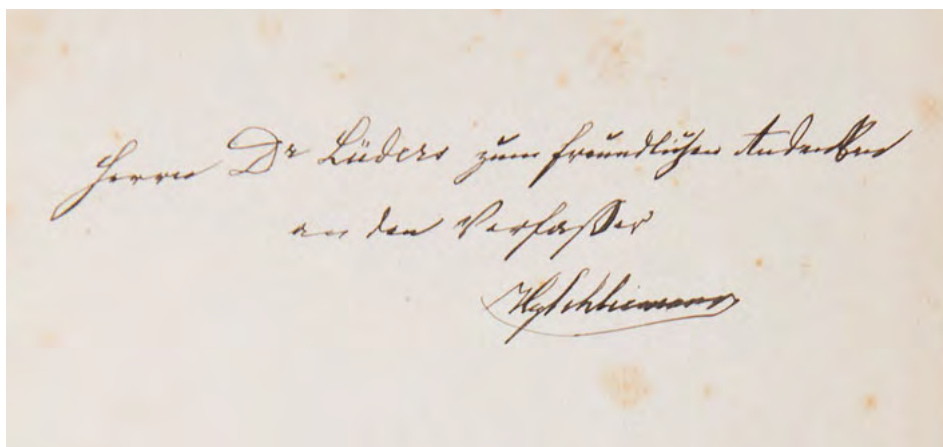 Herrn Dr Lüders zum freundlichen Andenken
an den Verfasser
HySchliemann